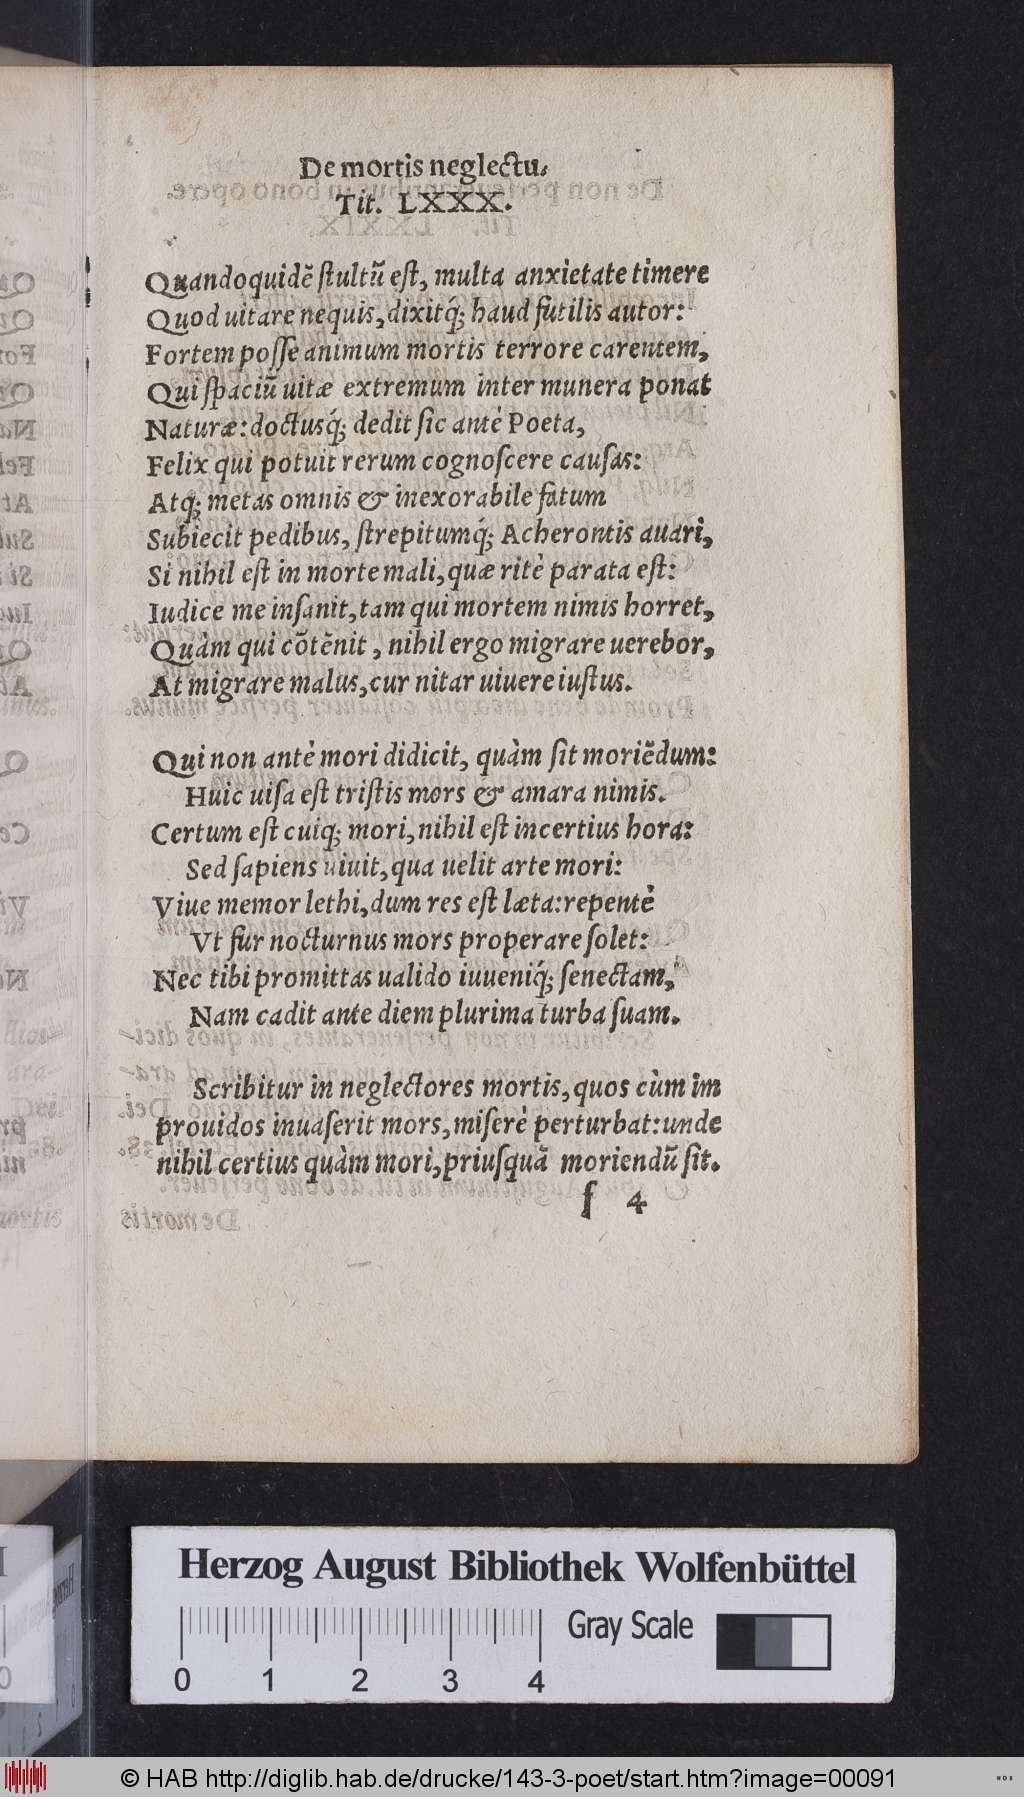 De mortis neglectu.
Tit. LXXX.
Quandoquidē stultū est, multa anxietate timere
Quod uitare nequis, dixitq́; haud futilis autor:
Fortem posse animum mortis terrore carentem,
Qui spaciū uitæ extremum inter munera ponat
Naturæ: doctusq́; dedit sic antè Poeta,
Felix qui potuit rerum cognoscere causas:
Atq; metas omnis & inexorabile fatum
Subiecit pedibus, strepitumq́; Acherontis auari,
Si nihil est in morte mali, quæ ritè parata est:
Iudice me insanit, tam qui mortem nimis horret,
Quàm qui cōtēnit, nihil ergo migrare uerebor,
At migrare malus, cur nitar uiuere iustus.
Qui non antè mori didicit, quàm sit moriēdum:
Huic uisa est tristis mors & amara nimis.
Certum est cuiq; mori, nihil est incertius hora:
Sed sapiens uiuit, qua uelit arte mori:
Viue memor lethi, dum res est læta: repentè
Vt fur nocturnus mors properare solet:
Nec tibi promittas ualido iuueniq́; senectam,
Nam cadit ante diem plurima turba suam.
Scribitur in neglectores mortis, quos cùm im
prouidos inuaserit mors, miserè perturbat: unde
nihil certius quàm mori, priusquā moriendū sit.
f 4
Herzog August Bibliothek Wolfenbüttel
Gray Scale
0 1 2 3 4
© HAB http://diglib.hab.de/drucke/143-3-poet/start.htm?image=00091